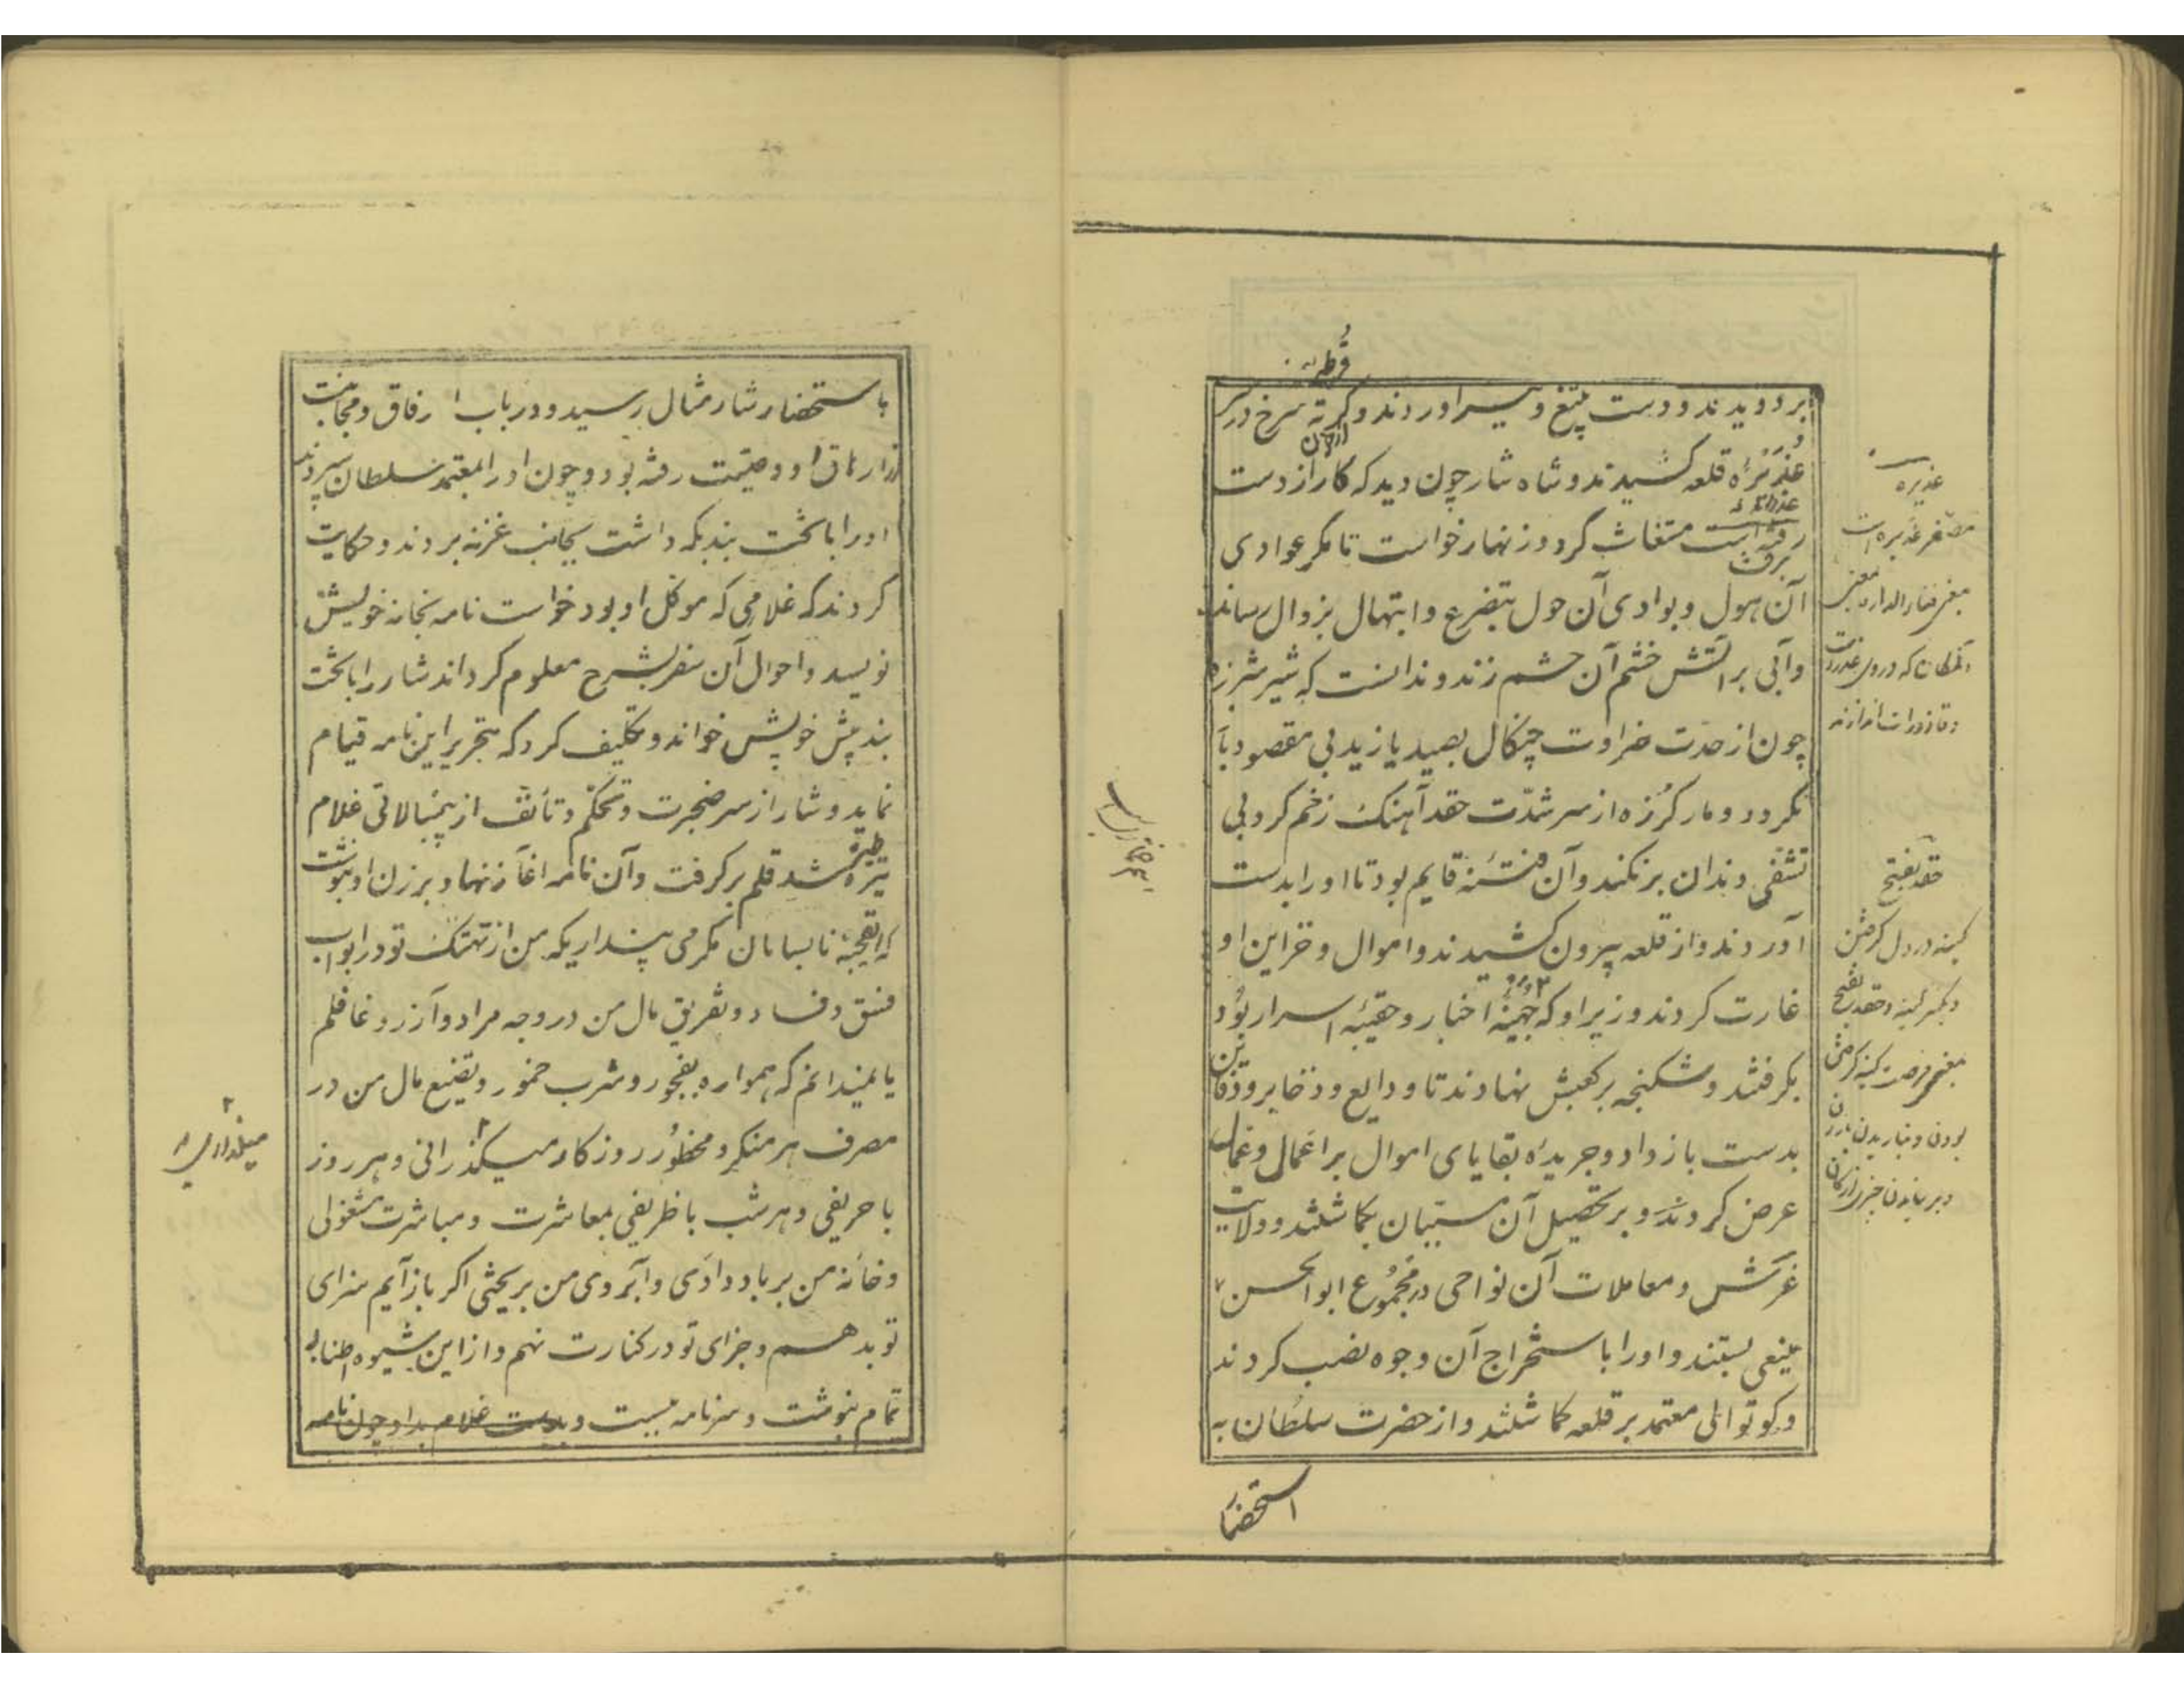 قرطه
بر دویدند و دست بتیغ و تیر آوردند و کرته سرخ در سر
عذیرهٔ قلعه کشیدند و شاه شار چون دید که کار از دست
رفته است مستغاث کرد و زنهار خواست تا مگر عوادی
آن هول و بوادی آن حول بتضرع و ابتهال بزوال رساند
وآبی بر آتش خشم آن حشم زند و ندانست که شیر شرزه
چون از حدّت ضراوت چنکال بصید یازید بی مقصود باز
نکردد و مار کرزه از سر شدّت حقد آهنک زخم کرد بی
تشفّی دندان برنکند وآن فتنه قایم بود تا او را بدست
آوردند و از قلعه بیرون کشیدند و اموال و خزاین او
غارت کردند و زیر او که جهینهٔ اخبار و حقیبهٔ اسرار بود
بکرفتند و شکنجه بر کعبش نهادند تا ودایع و ذخایر و دفاین
بدست باز داد و جریدهٔ بقایای اموال بر اعمال و عمال
عرض کردند و بر تحصیل آن مستحثان بکماشتند و ولایت
غرش و معاملات آن نواحی در مجموع ابوالحسن
منیعی بستند و او را باستخراج آن وجوه نصب کردند
و کوتوالی معتمد بر قلعه کماشتند و از حضرت سلطان به
استحضار
غدیره
مصغر غدیره است
حقد بفتح
کینه در دل کرفتن
و بکسر کینه و حقد بفتح
باستحضار شار مثال رسید و در باب ارفاق و مجانبت
از ارهاق او وصیّت رفته بود و چون او را بمعتمد سلطان سپردند
او را با تخت بند بکه داشت بجانب غزنه بردند و حکایت
کردند که غلامی که موکل او بود خواست نامه بخانه خویش
نویسد و احوال آن سفر بشرح معلوم کرداند شار را با تخت
بند پیش خویش خواند و تکلیف کرد که بتحریر این نامه قیام
نماید و شار از سر ضجرت و تحکّم و تأنّف از بیمبالاتی غلام
تیره شد قلم برکرفت وآن نامه آغاز نهاد و بر زن او نبوشت
که ایقحبهٔ نابسامان مکر می پنداریکه من از تهتک تو در ابواب
فسق و فساد و تفریق مال من در وجه مراد وآرزو غافلم
یا نمیدانم که همواره بفجور و شرب خمور و تضیع مال من در
مصرف هر منکر و محظور روزکار میکذرانی و هر روز
با حریفی و هر شب با ظریفی بمعاشرت و مباشرت مشغولی
و خانهٔ من بر باد دادی وآبروی من بریختی اکر باز آیم سزای
تو بدهم و جزای تو در کنارت نهم و از این شیوه اطنابی
تمام بنوشت و سر نامه ببست و بدست غلام بداد چون نامه